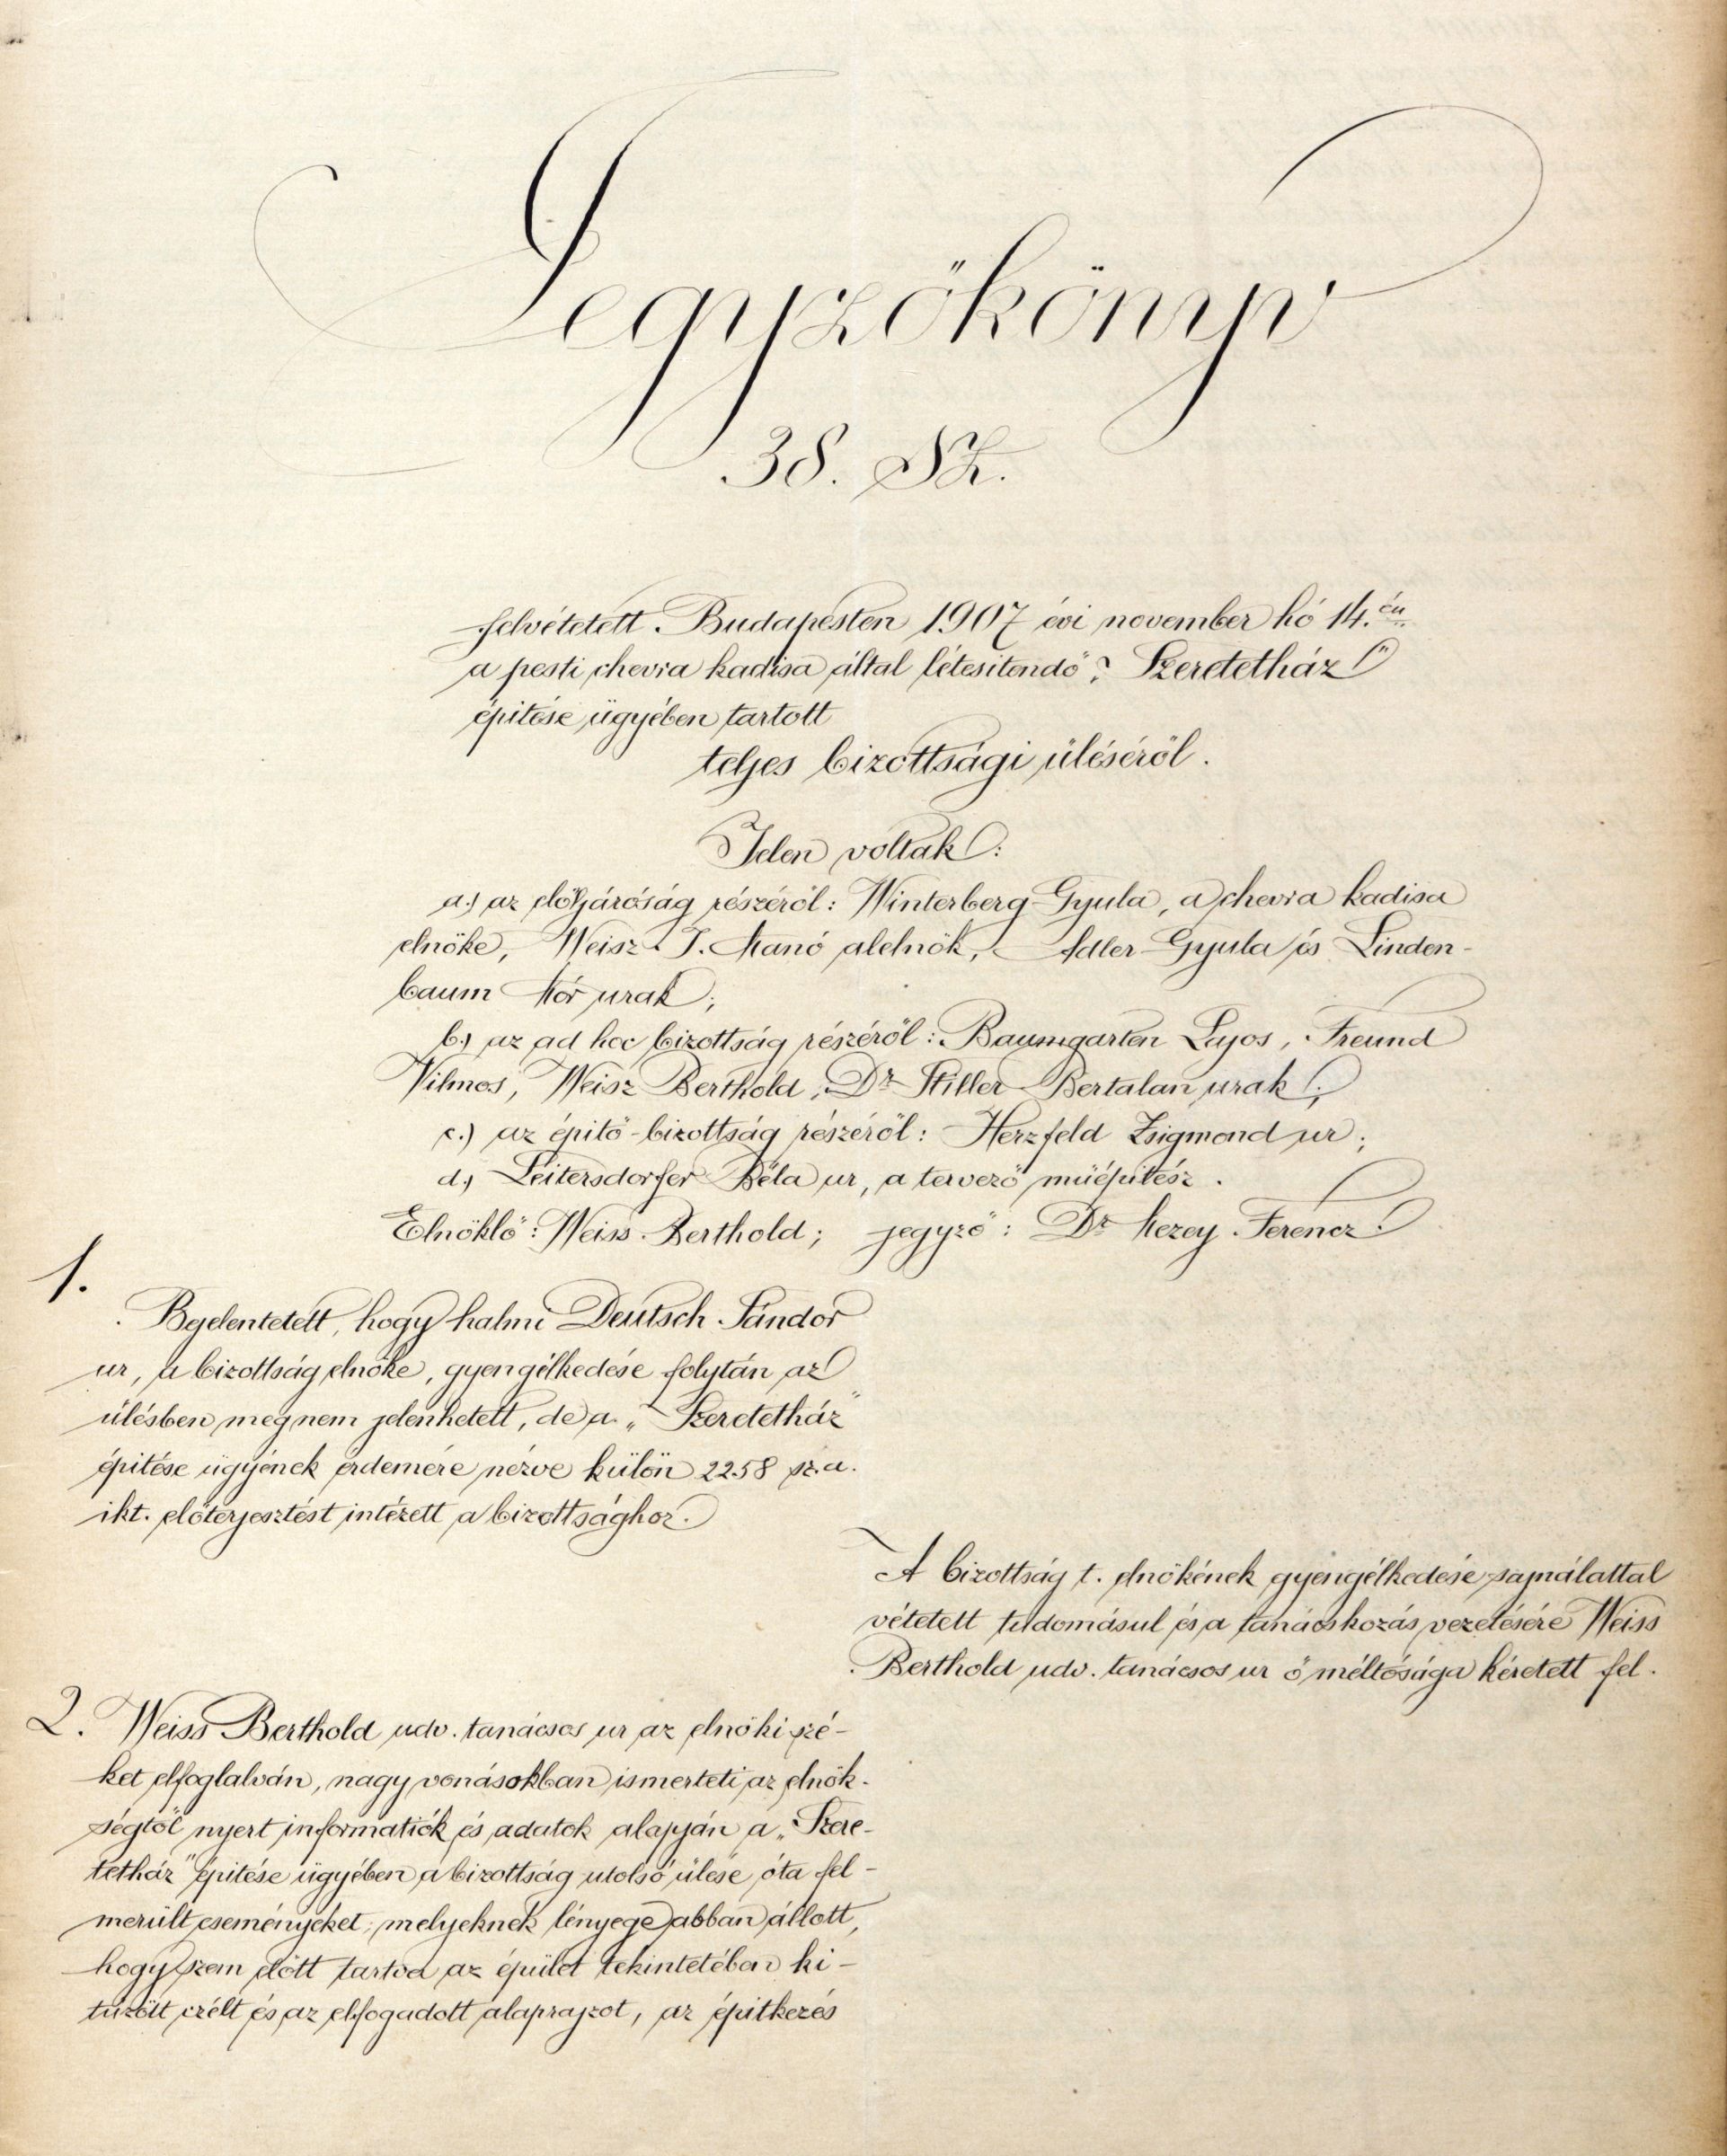 Jegyzőkönyv
38. Sz.
felvétetett Budapesten 1907 évi november hó 14.én
a pesti chevra kadisa által létesitendő „Szeretetház"
épitése ügyében tartott
teljes bizottsági üléséről.
Jelen voltak:
a.) az előljáróság részéről: Winterberg Gyula, a chevra kadisa
elnöke, Weisz J. Manó alelnök, Adler Gyula és Linden-
baum Mór urak;
b.) az ad hoc bizottság részéről: Baumgarten Lajos, Freund
Vilmos, Weisz Berthold, Dr Stiller Bertalan urak;
c.) az épitő-bizottság részéről: Herzfeld Zsigmond ur;
d.) Leitersdorfer Béla ur, a tervező müépitész.
Elnöklő: Weiss Berthold; jegyző: Dr Mezey Ferencz.
1.
Bejelentetett, hogy halmi Deutsch Sándor
ur, a bizottság elnöke, gyengélkedése folytán az
ülésben meg nem jelenhetett, de a „Szeretetház"
épitése ügyének érdemére nézve külön 2258 sz. a.
ikt. előterjesztést intézett a bizottsághoz.
A bizottság t. elnökének gyengélkedése sajnálattal
vétetett tudomásul és a tanácskozás vezetésére Weiss
Berthold udv. tanácsos ur ő méltósága kéretett fel.
2. Weiss Berthold udv. tanácsos ur az elnöki szé-
ket elfoglalván, nagy vonásokban ismerteti az elnök-
ségtől nyert informatiók és adatok alapján a „Szere-
tetház" épitése ügyében a bizottság utolsó ülése óta fel-
merült eseményeket, melyeknek lényege abban állott,
hogy szem előtt tartva az épület tekintetében ki-
tüzött czélt és az elfogadott alaprajzot, az épitkezés